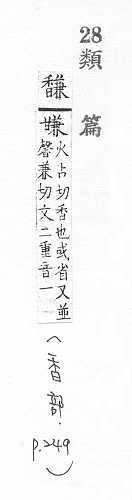 28 類篇
馦
火占切香也或省又並
馨兼切文二重音一
(香部.p.249)